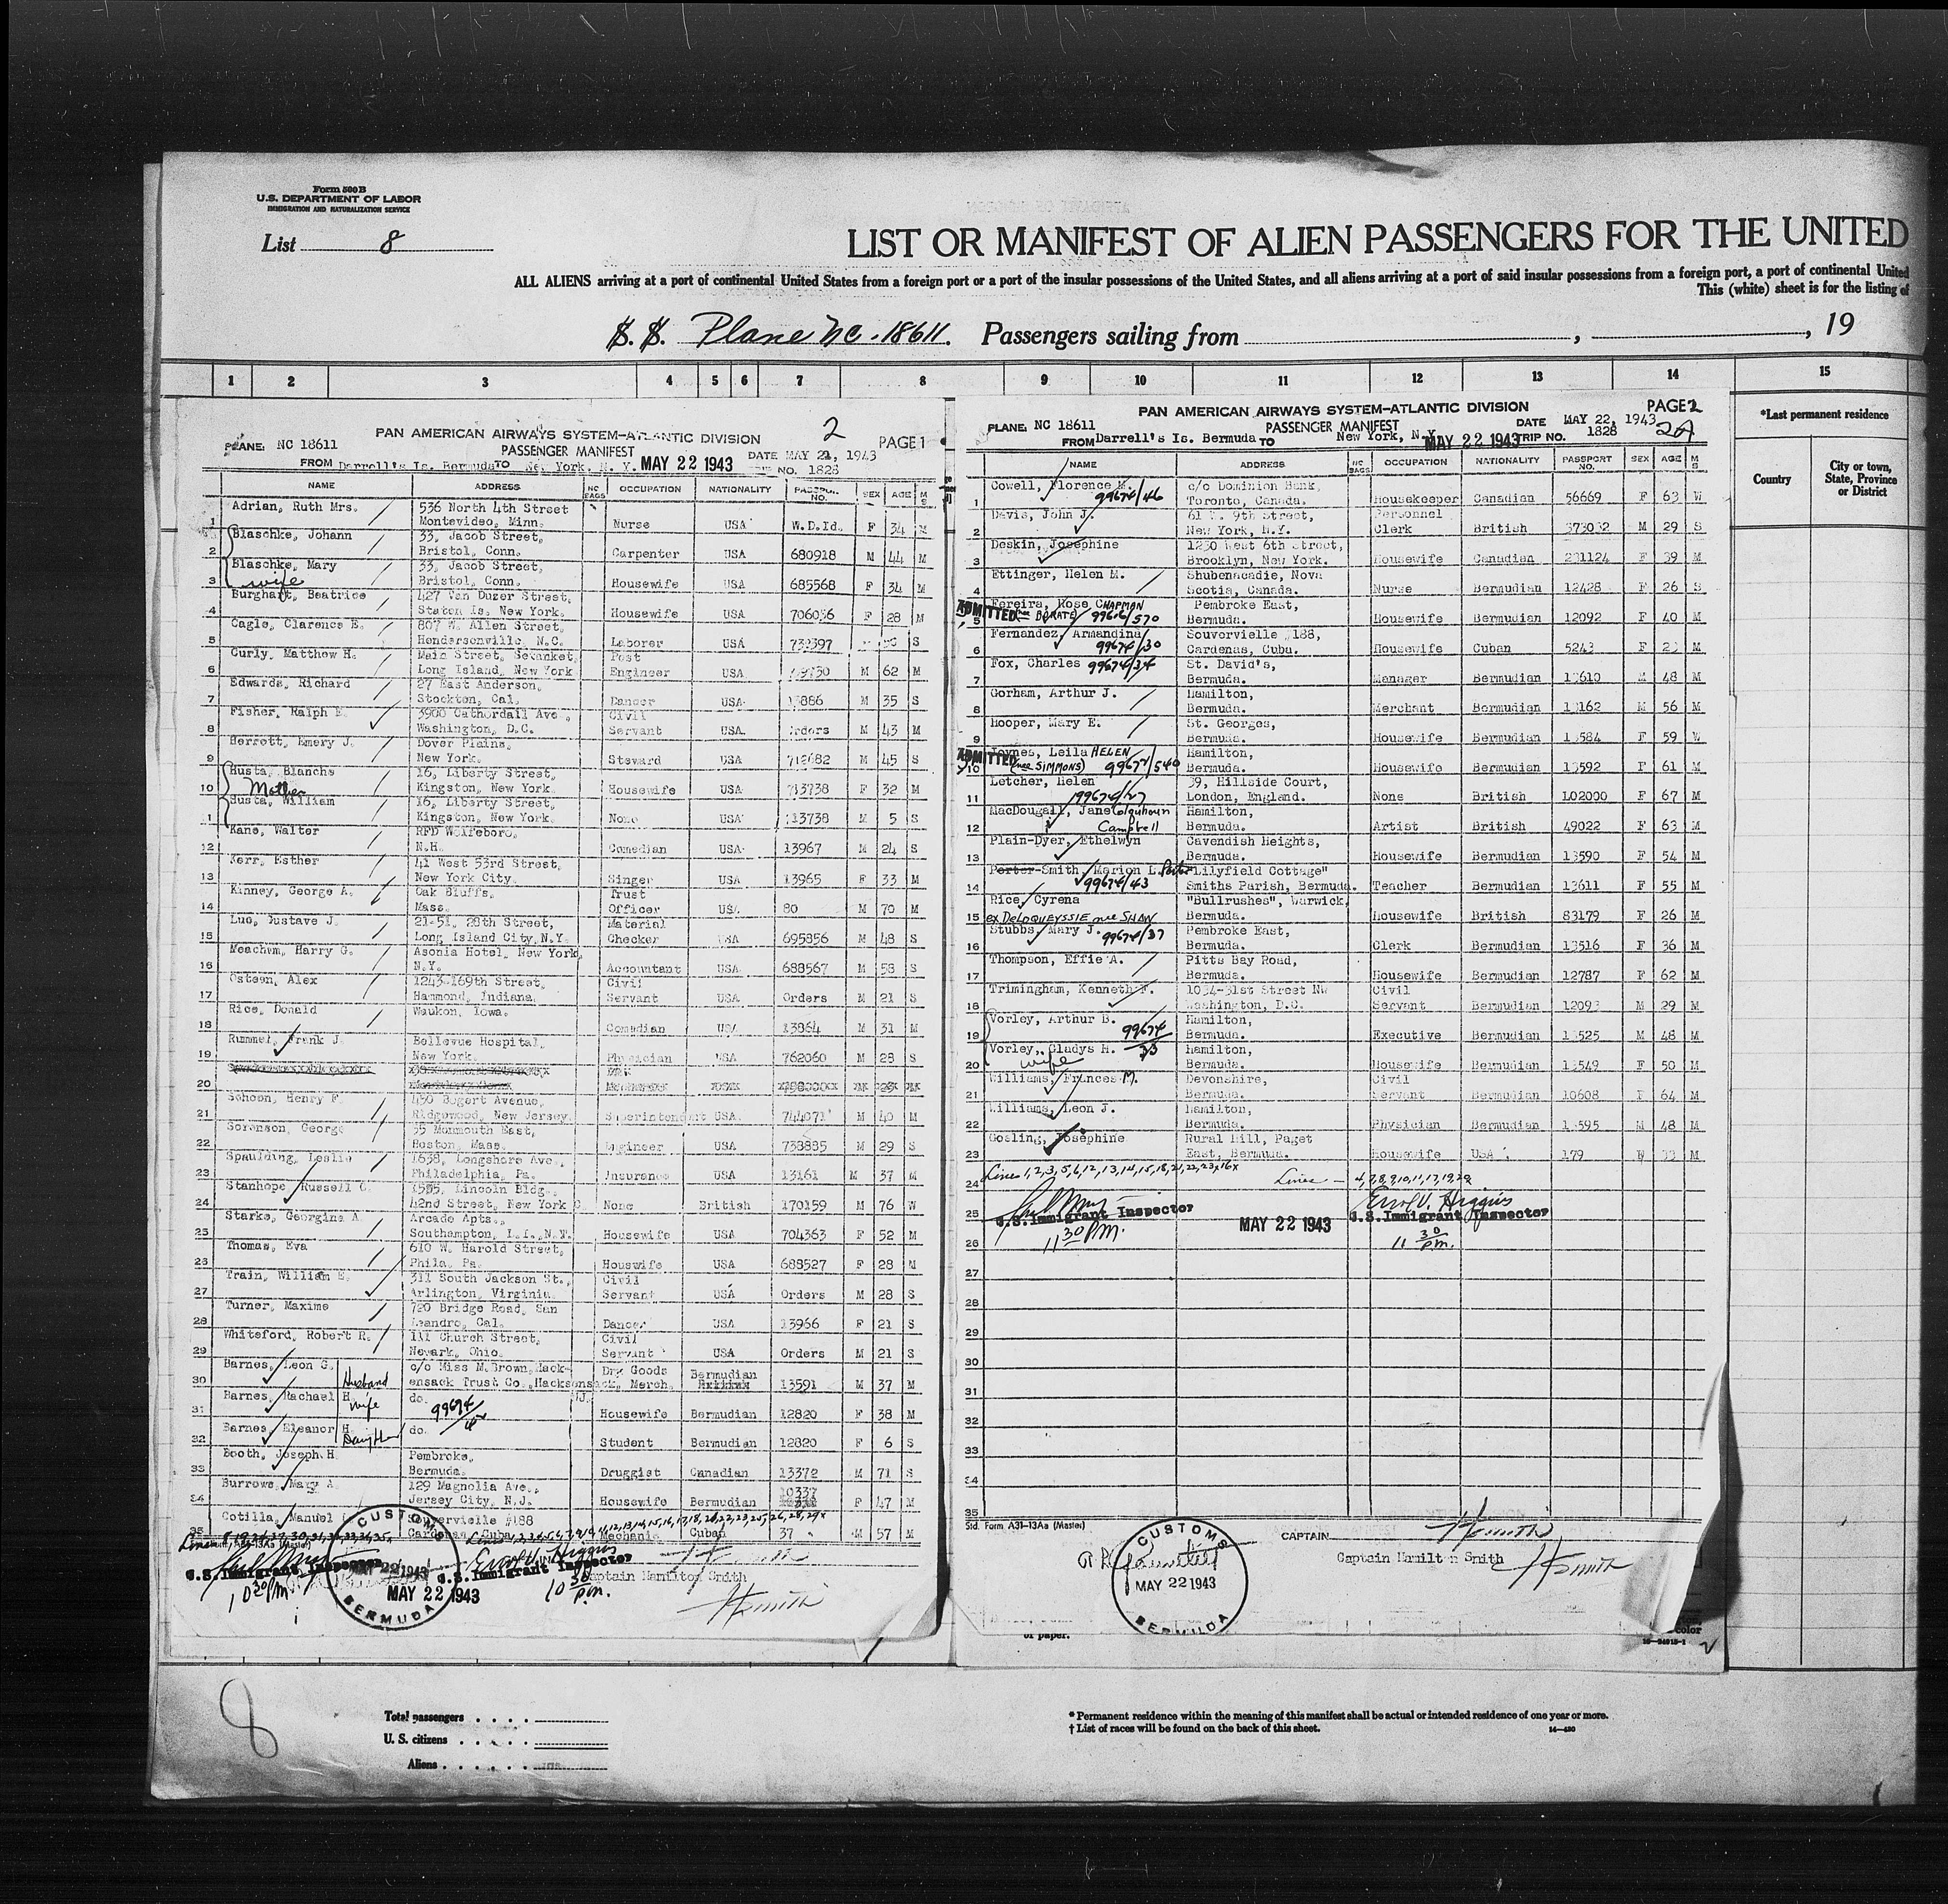 Form 500B
U.S. DEPARTMENT OF LABOR
IMMIGRATION AND NATURALIZATION SERVICE
List 8
LIST OR MANIFEST OF ALIEN PASSENGERS FOR THE UNITED
ALL ALIENS arriving at a port of continental United States from a foreign port or a port of the insular possessions of the United States, and all aliens arriving at a port of said insular possessions from a foreign port, a port of continental United
This (white) sheet is for the listing of
S. S. Plane NC-18611. Passengers sailing from , , 19
1 2 3 4 5 6 7 8 9 10 11 12 13 14 15
*Last permanent residence
Country
City or town, State, Province or District
2
PAN AMERICAN AIRWAYS SYSTEM—ATLANTIC DIVISION PAGE 1
PLANE: NC 18611 PASSENGER MANIFEST DATE MAY 21, 1943
FROM Darrell's Is. Bermuda TO New York, N. Y. MAY 22 1943 TRIP NO. 1828
NAME ADDRESS NO BAGS OCCUPATION NATIONALITY PASSPORT NO. SEX AGE M S
1 Adrian, Ruth Mrs. 536 North 4th Street Montevideo, Minn. Nurse USA W.D.Id. F 34 M
2 Blaschke, Johann 33, Jacob Street, Bristol, Conn. Carpenter USA 680918 M 44 M
3 Blaschke, Mary wife 33, Jacob Street, Bristol, Conn. Housewife USA 685568 F 34 M
4 Burghart, Beatrice 427 Van Duzer Street, Staten Is. New York. Housewife USA 706056 F 28 M
5 Cagle, Clarence E. 807 W. Allen Street, Hendersonville, N.C. Laborer USA 732397 S
6 Curly, Matthew H. Main Street, Setauket, Long Island, New York Post Engineer USA M 62 M
7 Edwards, Richard 27 East Anderson, Stockton, Cal. Dancer USA 13886 M 35 S
8 Fisher, Ralph E. 3900 Cathedrall Ave., Washington, D.C. Civil Servant USA. Orders M 43 M
9 Herrett, Emery J. Dover Plains, New York. Steward USA 712682 M 45 S
10 Husta, Blanche Mother 16, Liberty Street, Kingston, New York. Housewife USA 713738 F 32 M
11 Husta, William 16, Liberty Street, Kingston, New York. None USA 713738 M 5 S
12 Kane, Walter RFD Wolfeboro, N.H. Comedian USA 13967 M 24 S
13 Kerr, Esther 41 West 53rd Street, New York City. Singer USA 13965 F 33 M
14 Kinney, George A. Oak Bluffs, Mass. Trust Officer USA 80 M 70 M
15 Luc, Gustave J. 21-51, 28th Street, Long Island City, N.Y. Material Checker USA 695856 M 48 S
16 Meachum, Harry G. Asonia Hotel, New York, N.Y. Accountant USA 688567 M 58 S
17 Osteen, Alex 1243-169th Street, Hammond, Indiana. Civil Servant USA Orders M 21 S
18 Rice, Donald Waukon, Iowa. Comedian USA 13864 M 31 M
19 Rummel, Frank J. Bellevue Hospital, New York. Physician USA 762060 M 28 S
20
21 Schoen, Henry F. 450 Bogert Avenue, Ridgewood, New Jersey. Superintendent USA. 744071 M 40 M
22 Sorenson, George 35 Monmouth East, Boston, Mass. Engineer USA 738885 M 29 S
23 Spaulding, Leslie 1638, Longshore Ave., Philadelphia, Pa. Insurance USA 13161 M 37 M
24 Stanhope, Russell C. 1555, Lincoln Bldg. 42nd Street, New York C. None British 170159 M 76 W
25 Starke, Georgina A. Arcade Apts., Southampton, L.I., N.Y. Housewife USA 704363 F 52 M
26 Thomas, Eva 610 W. Harold Street, Phila. Pa. Houswife USA 688527 F 28 M
27 Train, William E. 311 South Jackson St., Arlington, Virginia. Civil Servant USA Orders M 28 S
28 Turner, Maxime 720 Bridge Road, San Leandro, Cal. Dancer USA 13966 F 21 S
29 Whiteford, Robert R. 111 Church Street, Newark, Ohio. Civil Servant USA Orders M 21 S
30 Barnes, Leon G. Husband c/o Miss M.Brown, Hackensack Trust Co., Hackensack, N.J. Dry Goods Merch. Bermudian 13591 M 37 M
31 Barnes, Rachael H. wife do. 99674/45 Housewife Bermudian 12820 F 38 M
32 Barnes, Eleanor H. Daughter do. Student Bermudian 12820 F 6 S
33 Booth, Joseph H. Pembroke, Bermuda. Druggist Canadian 13372 M 71 S
34 Burrows, Mary A. 129 Magnolia Ave., Jersey City, N.J. Housewife Bermudian 10337 F 47 M
35 Cotilla, Manuel Souvervielle #188 Cardenas, Cuba Mechanic Cuban 37 M 57 M
U.S. Immigrant Inspector
10 30 P.M.
CUSTOMS MAY 22 1943 BERMUDA
MAY 22 1943
Errol V. Higgins
U.S. Immigrant Inspector
10 30 P.M.
Captain Hamilton Smith
H Smith
PAN AMERICAN AIRWAYS SYSTEM—ATLANTIC DIVISION PAGE 2
PLANE: NC 18611 PASSENGER MANIFEST DATE MAY 22, 1943 2A
FROM Darrell's Is. Bermuda TO New York, N.Y. MAY 22 1943 TRIP NO. 1828
NAME ADDRESS NO BAGS OCCUPATION NATIONALITY PASSPORT NO. SEX AGE M S
1 Cowell, Florence M. 99674/46 c/o Dominion Bank, Toronto, Canada. Housekeeper Canadian 56669 F 63 W
2 Davis, John J. 61 W. 9th Street, New York, N.Y. Personnel Clerk British 373032 M 29 S
3 Deskin, Josephine 1230 West 6th Street, Brooklyn, New York. Housewife Canadian 231124 F 39 M
4 Ettinger, Helen M. Shubenacadie, Nova Scotia, Canada. Nurse Bermudian 12428 F 26 S
5 ADMITTED Pereira, Rose CHAPMAN 99676/570 Pembroke East, Bermuda. Housewife Bermudian 12092 F 40 M
6 Fernandez, Armandina 99674/30 Souvervielle #188, Cardenas, Cuba. Housewife Cuban 5243 F M
7 Fox, Charles 99674/34 St. David's, Bermuda. Manager Bermudian 13610 M 48 M
8 Gorham, Arthur J. Hamilton, Bermuda. Merchant Bermudian 13162 M 56 M
9 Hooper, Mary E. St. Georges, Bermuda. Housewife Bermudian 13584 F 59 W
10 ADMITTED Joynes, Leila HELEN (nee SIMMONS) 99672/540 Hamilton, Bermuda. Housewife Bermudian 13592 F 61 M
11 Letcher, Helen 99674/27 39, Hillside Court, London, England. None British L02000 F 67 M
12 MacDougall, Jane Colquhoun Campbell Hamilton, Bermuda. Artist British 49022 F 63 M
13 Plain-Dyer, Ethelwyn Cavendish Heights, Bermuda. Housewife Bermudian 13590 F 54 M
14 Porter-Smith, Marion L. Porter 99674/43 "Lilyfield Cottage" Smiths Parish, Bermuda. Teacher Bermudian 13611 F 55 M
15 Rice, Cyrena ex DeLOQUEYSSIE nee SHAW "Bullrushes", Warwick, Bermuda. Housewife British 83179 F 26 M
16 Stubbs, Mary J. 99674/37 Pembroke East, Bermuda. Clerk Bermudian 13516 F 36 M
17 Thompson, Effie A. Pitts Bay Road, Bermuda. Housewife Bermudian 12787 F 62 M
18 Trimingham, Kenneth F. 1034-31st Street NW Washington, D.C. Civil Servant Bermudian 12093 M 29 M
19 Vorley, Arthur B. Hamilton, Bermuda. Executive Bermudian 13525 M 48 M
20 Vorley, Gladys H. wife 99674/33 Hamilton, Bermuda. Housewife Bermudian 13549 F 50 M
21 Williams, Frances M. Devonshire, Bermuda. Civil Servant Bermudian 10608 F 64 M
22 Williams, Leon J. Hamilton, Bermuda. Physician Bermudian 13595 M 48 M
23 Gosling, Josephine Rural Hill, Paget East, Bermuda. Housewife USA 179 F 33 M
24 Lines 1,2,3,5,6,12,13,14,15,18,21,22,23,16x Lines — 4,7,8,9,10,11,17,19,20
25 U.S. Immigrant Inspector MAY 22 1943 Errol V. Higgins U.S. Immigrant Inspector
26 11 30 P.M. 11 30 P.M.
27
28
29
30
31
32
33
34
35
Std. Form A31-13Aa (Master)
CUSTOMS MAY 22 1943 BERMUDA
CAPTAIN H Smith
Captain Hamilton Smith H Smith
of paper.
color
8
Total passengers
U. S. citizens
Aliens
* Permanent residence within the meaning of this manifest shall be actual or intended residence of one year or more.
† List of races will be found on the back of this sheet. 14—430